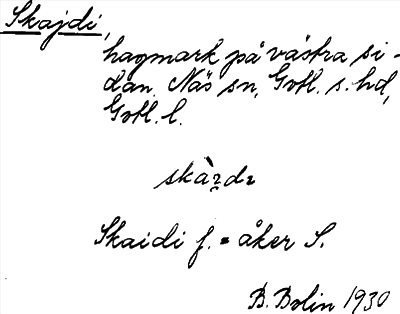 Skajdi,
hagmark på västra si-
dan. Näs sn, Gotl. s. hd,
Gotl. l.
Skaidi f. = åker S.
B. Bolin 1930